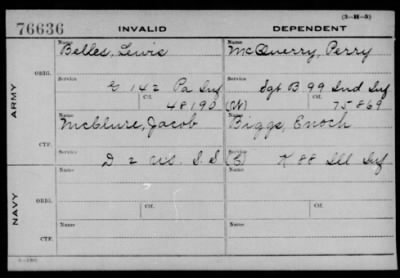 (3-H-3)
76636 INVALID DEPENDENT
Name Belles, Lewis Name McQuerry, Perry
ARMY
ORIG. Service G 142 Pa Inf Service Sgt B. 99 Ind Inf
Ctf. 48190 (W) Ctf. 75869
Name McClure, Jacob Name Biggs, Enoch
CTF. Service D 2 U.S. S.S (S) Service K 88 Ill Inf
NAVY
Name Name
ORIG. Service Ctf. Service Ctf.
Name Name
CTF. Service Service